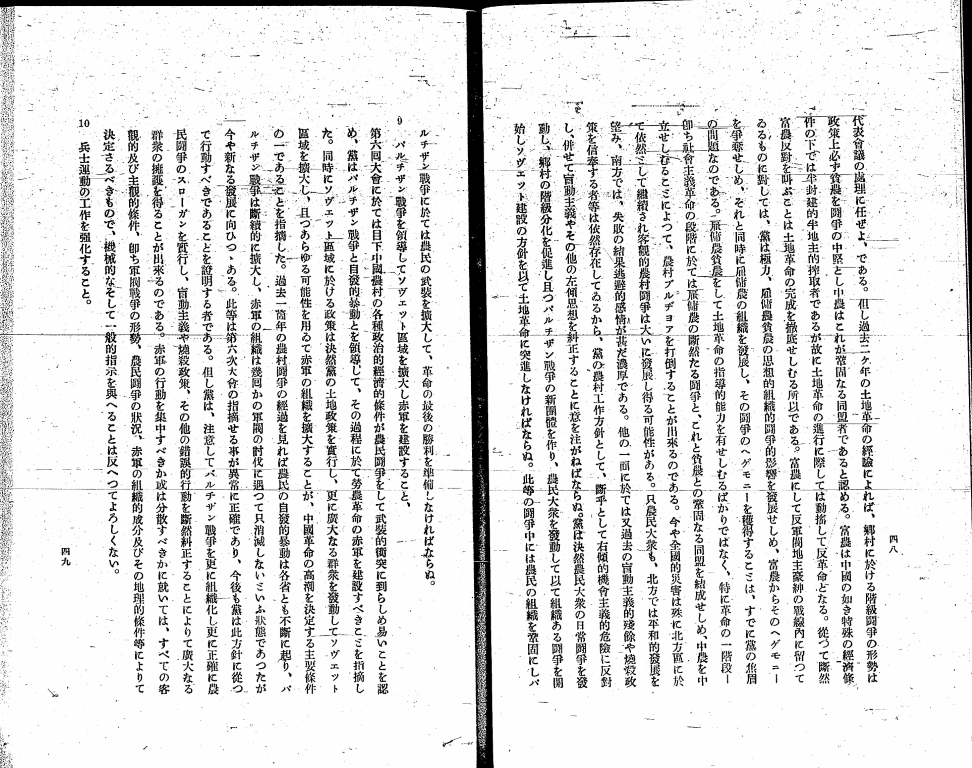 代表會議の處理に任ぜよ、である。但し過去二ケ年の土地革命の經驗によれば、鄉村に於ける階級鬪爭の形勢は
政策上必ず貧農を鬪爭の中堅とし中農はこれが鞏固なる同盟者であると認める。富農は中國の如き特殊の經濟條
件の下では半封建的半地主的搾取者であるが故に土地革命の進行に際しては動搖して反革命となる。從つて斷然
富農反對を叫ぶことは土地革命の完成を撤底せしむる所以である。富農にして反軍閥地主豪紳の戰線內に留つて
ゐるものに對しては、黨は極力、雇傭農貧農の思想的組織的鬪爭的影響を發展せしめ、富農からそのヘゲモニー
を爭奪せしめ、それと同時に雇傭農の組織を發展し、その鬪爭のヘゲモニーを獲得することは、すでに黨の焦眉
の問題なのである。雇傭農貧農をして土地革命の指導的能力を有せしむるばかりではなく、特に革命の一階段ー
卽ち社會主義革命の段階に於ては雇傭農の斷然たる鬪爭と、これと貧農との鞏固なる同盟を結成せしめ、中農を中
立せしむることによつて、農村ブルヂヨアを打倒することが出來るのである。今や全國的災害は殊に北方區に於
て依然として繼續され客觀的農村鬪爭は大いに發展し得る可能性がある。只農民大衆も、北方では平和的發展を
望み、南方では、失敗の結果逃避的感情が甚だ濃厚である。他の一面に於ては又過去の盲動主義的殘餘や燒殺政
策を信奉する者等は依然存在してゐるから、黨の農村工作方針として、斷乎として右傾的機會主義的危險に反對
し、併せて盲動主義やその他の左傾思想を糾正することに意を注がねばならぬ。黨は決然農民大衆の日常鬪爭を發
動し、鄉村の階級分化を促進し且つパルチザン戰爭の新團體を作り、農民大衆を發動して以て組織ある鬪爭を開
始しソヴエット建設の方針を以て土地革命に突進しなければならぬ。此等の鬪爭中には農民の組織を鞏固にしパ
四八
ルチザン戰爭に於ては農民の武裝を擴大して、革命の最後の勝利を準備しなければならぬ。
9 パルチザン戰爭を領導してソヴエット區域を擴大し赤軍を建設すること、
第六回大會に於ては目下中國農村の各種政治的經濟的條件が農民鬪爭をして武裝的衝突に到らしめ易いことを認
め、黨はパルチザン戰爭と自發的暴動とを領導して、その過程に於て勞農革命の赤軍を建設すべきことを指摘し
た。同時にソヴエット區域に於ける政策は決然黨の土地政策を實行し、更に廣大なる群衆を發動してソヴエット
區域を擴大し、且つあらゆる可能性を用ゐて赤軍の組織を擴大することが、中國革命の高潮を決定する主要條件
の一であることを指摘した。過去一箇年の農村鬪爭の經過を見れば農民の自發的暴動は各省とも不斷に起り、パ
ルチザン戰爭は斷續的に擴大し、赤軍の組織は幾回かの軍閥の討伐に遇つて只消滅しないといふ狀態であつたが
今や新なる發展に向ひつゝある。此等は第六次大會の指摘せる事が異常に正確であり、今後も黨は此方針に從つ
て行動すべきであることを證明する者である。但し黨は、注意してパルチザン戰爭を更に組織化し更に正確に農
民鬪爭のスローガンを實行し、盲動主義や燒殺政策、その他の錯誤的行動を斷然糾正することによりて廣大なる
群衆の擁護を得ることが出來るのである。赤軍の行動を集中すべきか或は分散すべきかに就いては、すべての客
觀的及び主觀的條件、卽ち軍閥戰爭の形勢、農民鬪爭の狀況、赤軍の組織的成分及びその地理的條件等によりて
決定さるべきもので、機械的なそして一般的指示を與へることは反へつてよろしくない。
10 兵士運動の工作を強化すること。
四九